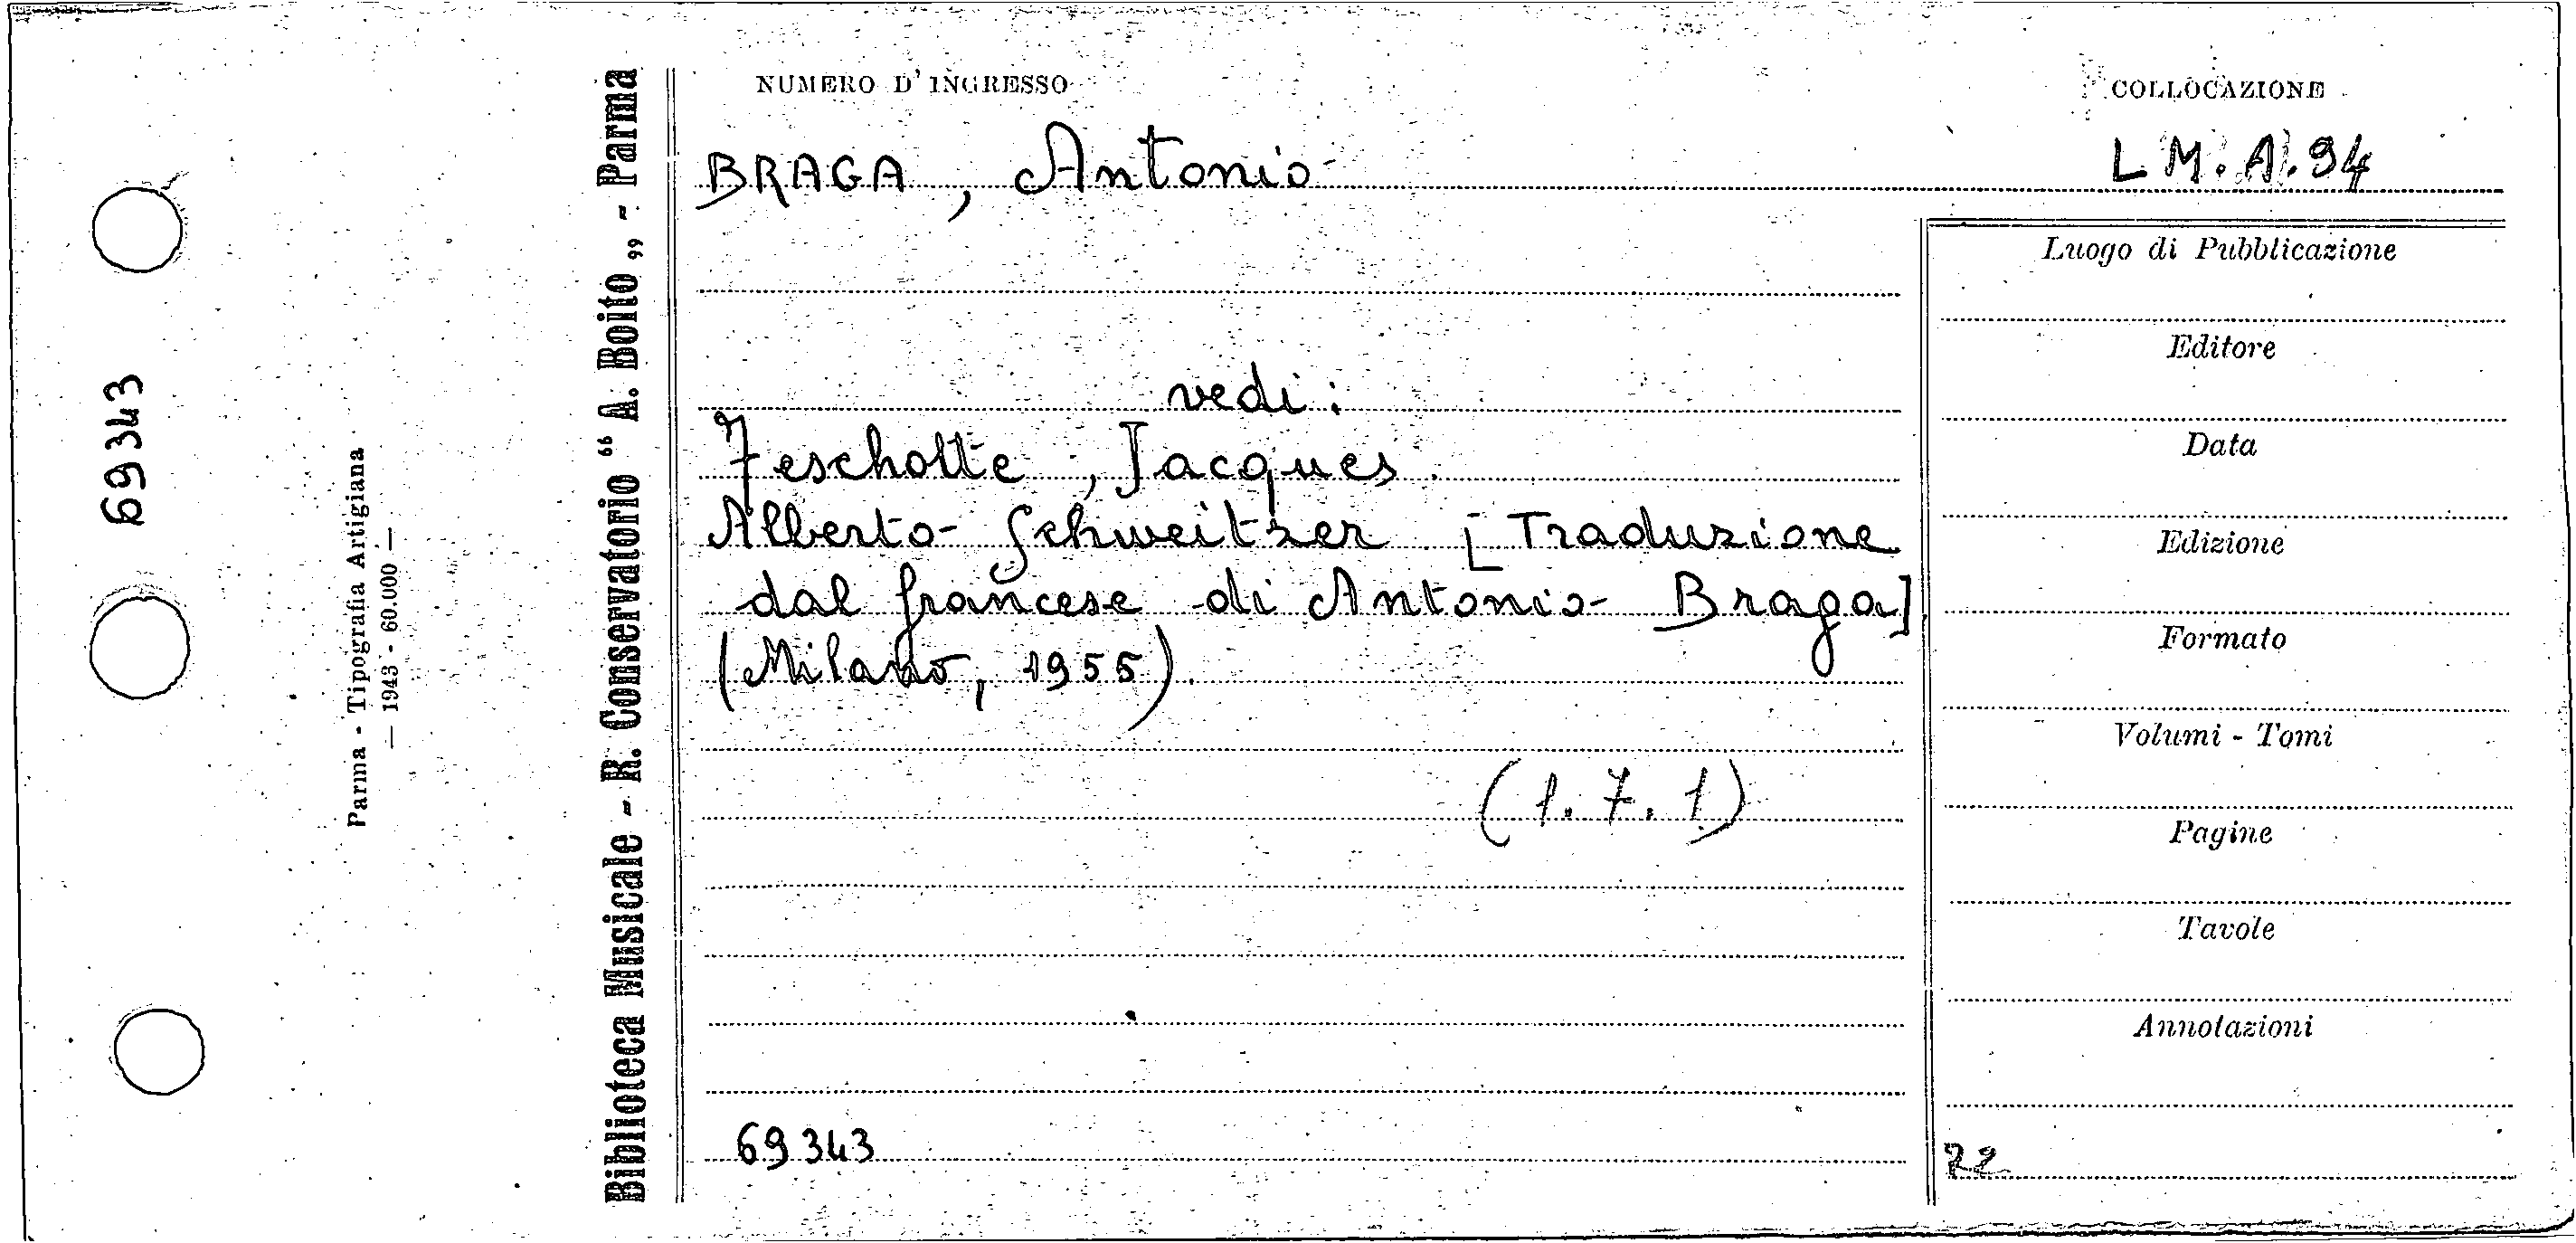 69343
Parma - Tipografia Artigiana
— 1943 - 60.000 —
Biblioteca Musicale - R. Conservatorio “ A. Boito „ - Parma
NUMERO D'INGRESSO
COLLOCAZIONE
BRAGA, Antonio
L M. A. 94
vedi:
Feschotte, Jacques.
Alberto Schweitzer [Traduzione
dal francese di Antonio Braga]
(Milano, 1955).
(1.7.1)
69343
Luogo di Pubblicazione
Editore
Data
Edizione
Formato
Volumi - Tomi
Pagine
Tavole
Annotazioni